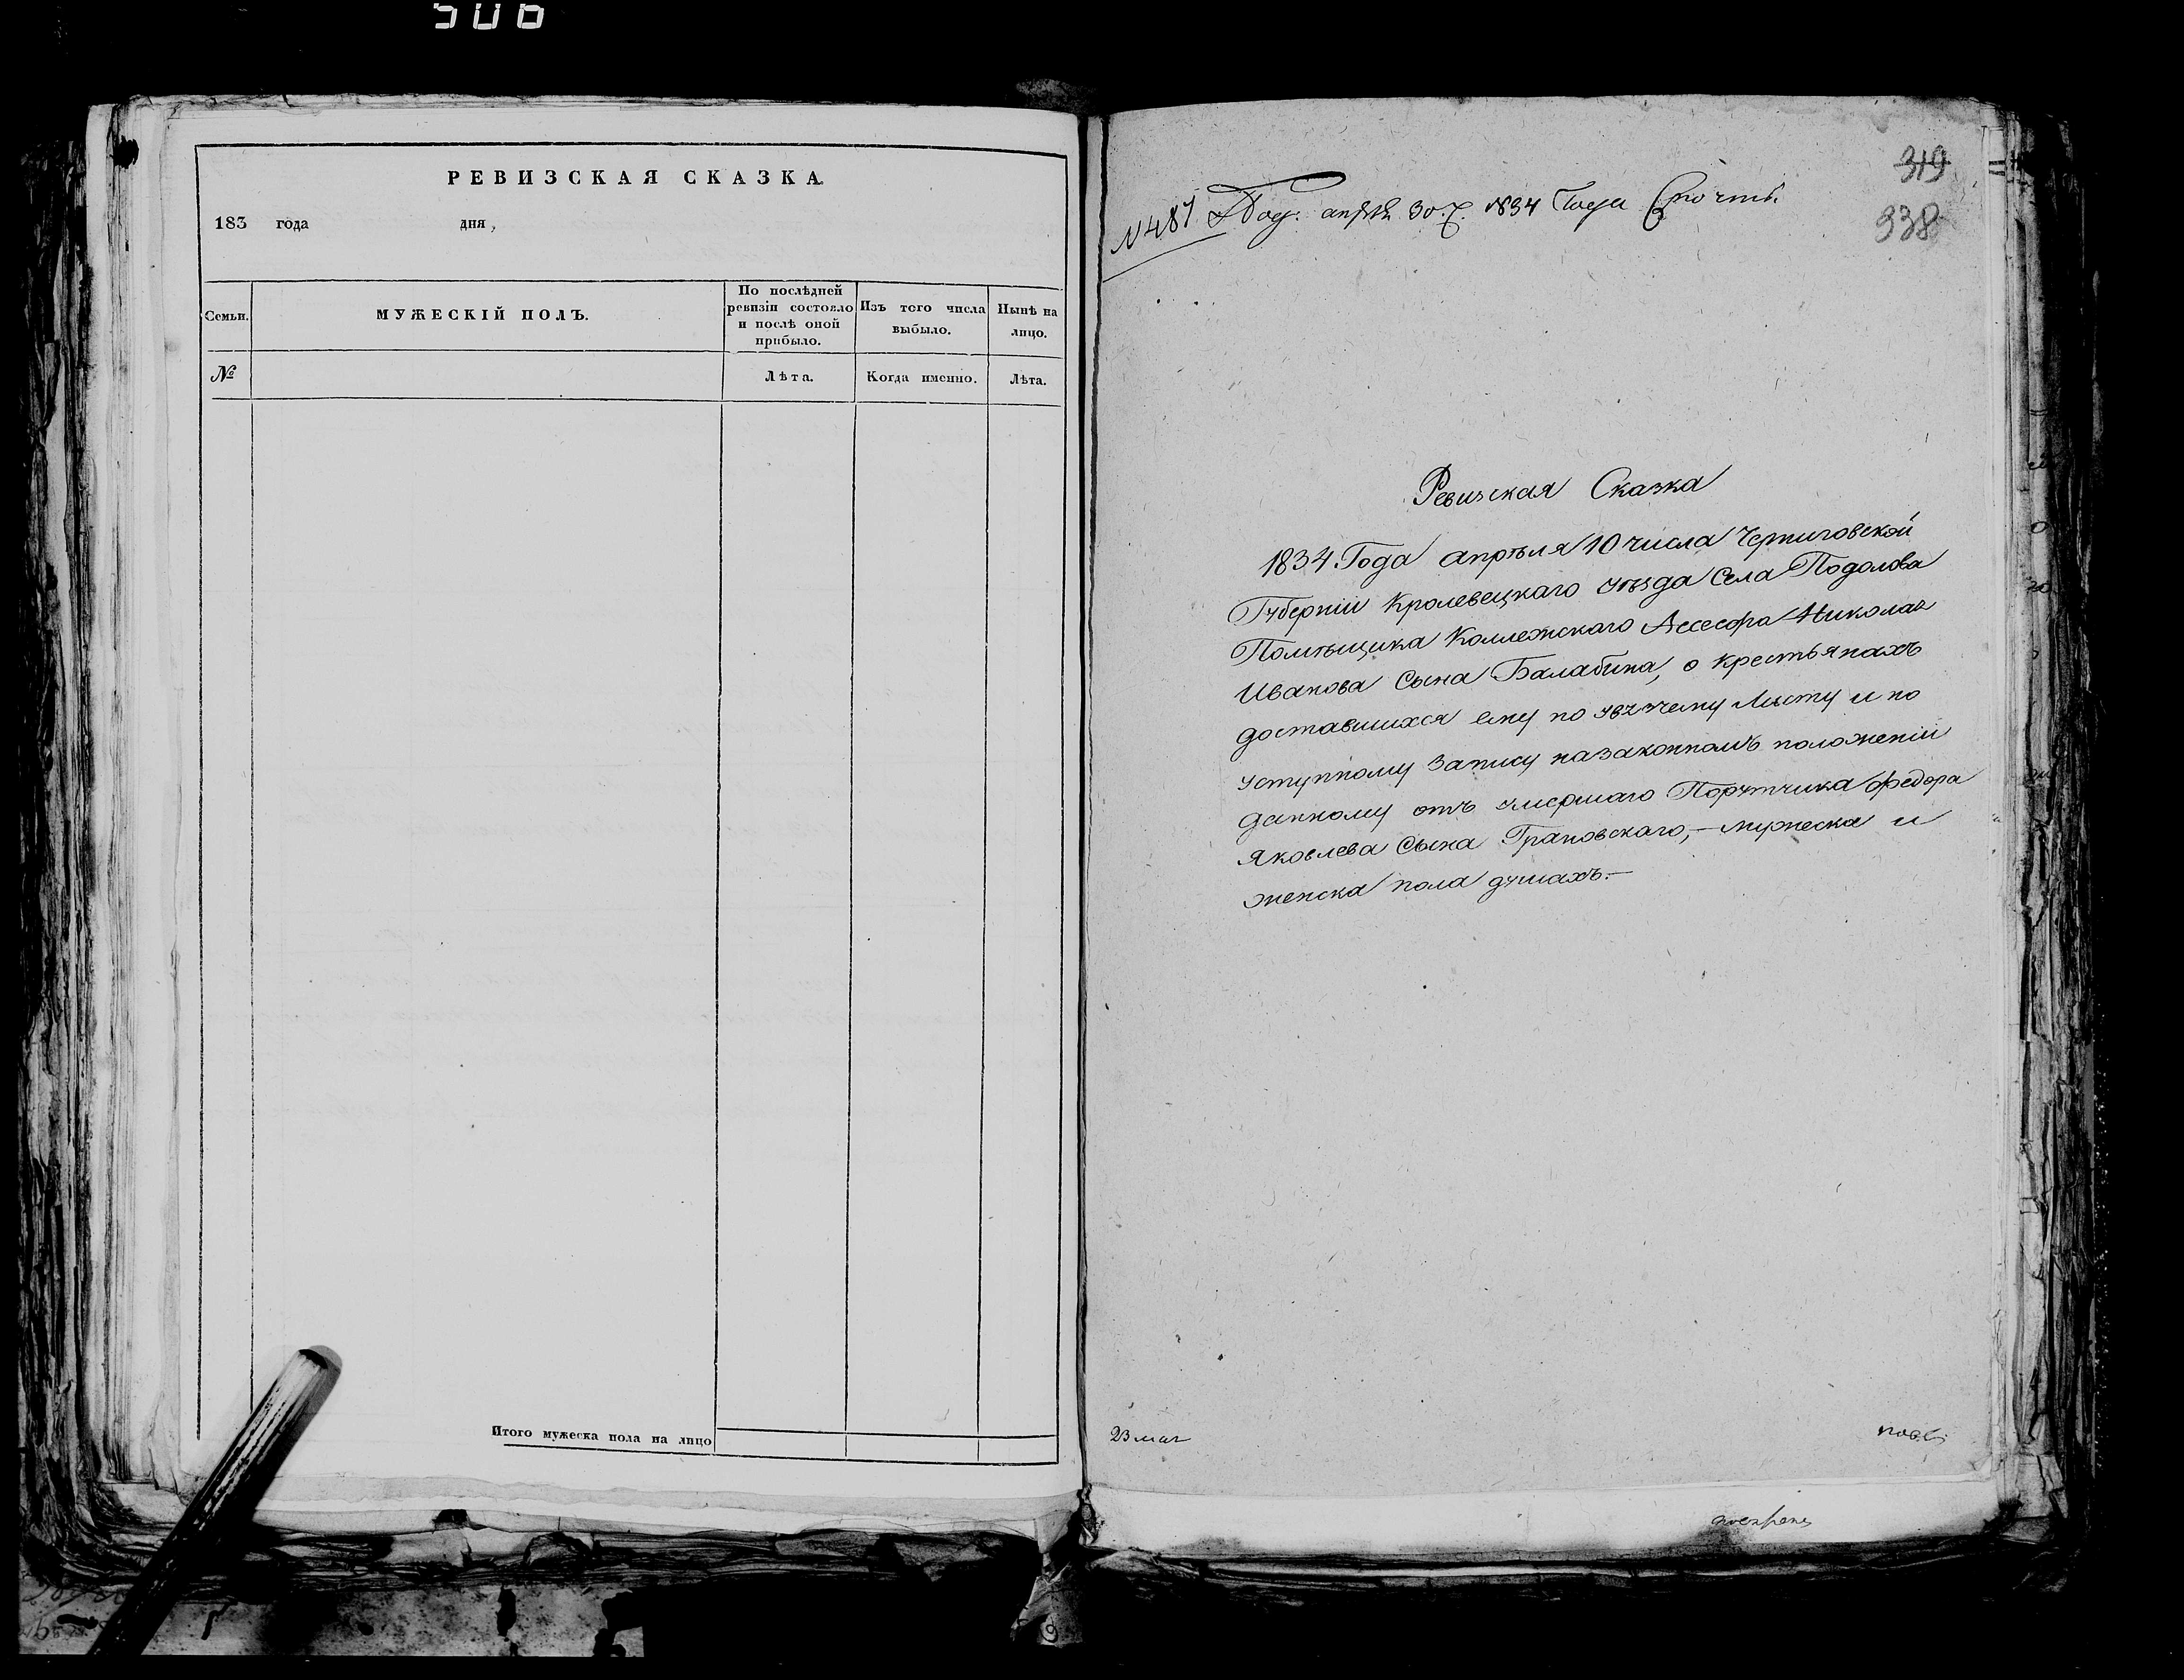 506
РЕВИЗСКАЯ СКАЗКА.
183 года дня,
Семьи.
МУЖЕСКІЙ ПОЛЪ.
По послѣдней
ревизіи состояло
и послѣ оной
прибыло.
Изъ того числа
выбыло.
Нынѣ на
лицо.
№
Лѣта.
Когда именно.
Лѣта.
Итого мужеска пола на лицо
319
338
N 487 Под: апрѣля 30. ч. 1834 Года
Ревизская Сказка
1834. Года апрѣля 10 числа Черниговской
Губерніи Кролевецкаго уѣзда Села Подолова
Помѣщика Коллежскаго Ассесора Николая
Иванова Сына Балабина, о крестьянахъ
доставшихся ему по Листу и по
уступному Запису назаконномъ положеніи
данному отъ умершаго Порутчика Федора
Яковлева Сына Грановскаго,- мужеска и
женска пола душахъ.-
23 мая